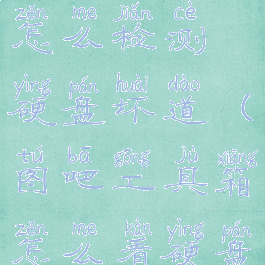 zěn me jiǎn cè
怎么检测
yìng pán huài dào
硬盘坏道（
tú bā gōng jù xiāng
图吧工具箱
zěn me kàn yìng pán
怎么看硬盘